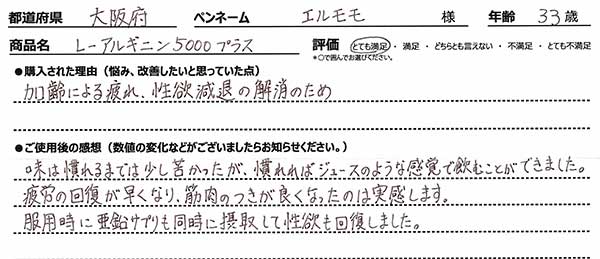 都道府県 大阪府 ペンネーム エルモモ 様 年齢 33歳
商品名 L-アルギニン5000プラス 評価 とても満足・満足・どちらとも言えない・不満足・とても不満足
*○で囲んでお選びください。
●購入された理由（悩み、改善したいと思っていた点）
加齢による疲れ、性欲減退の解消のため
●ご使用後の感想（数値の変化などがございましたらお知らせください。）
味は慣れるまでは少し苦かったが、慣れればジュースのような感覚で飲むことができました。
疲労の回復が早くなり、筋肉のつきが良くなったのは実感します。
服用時に亜鉛サプリも同時に摂取して性欲も回復しました。